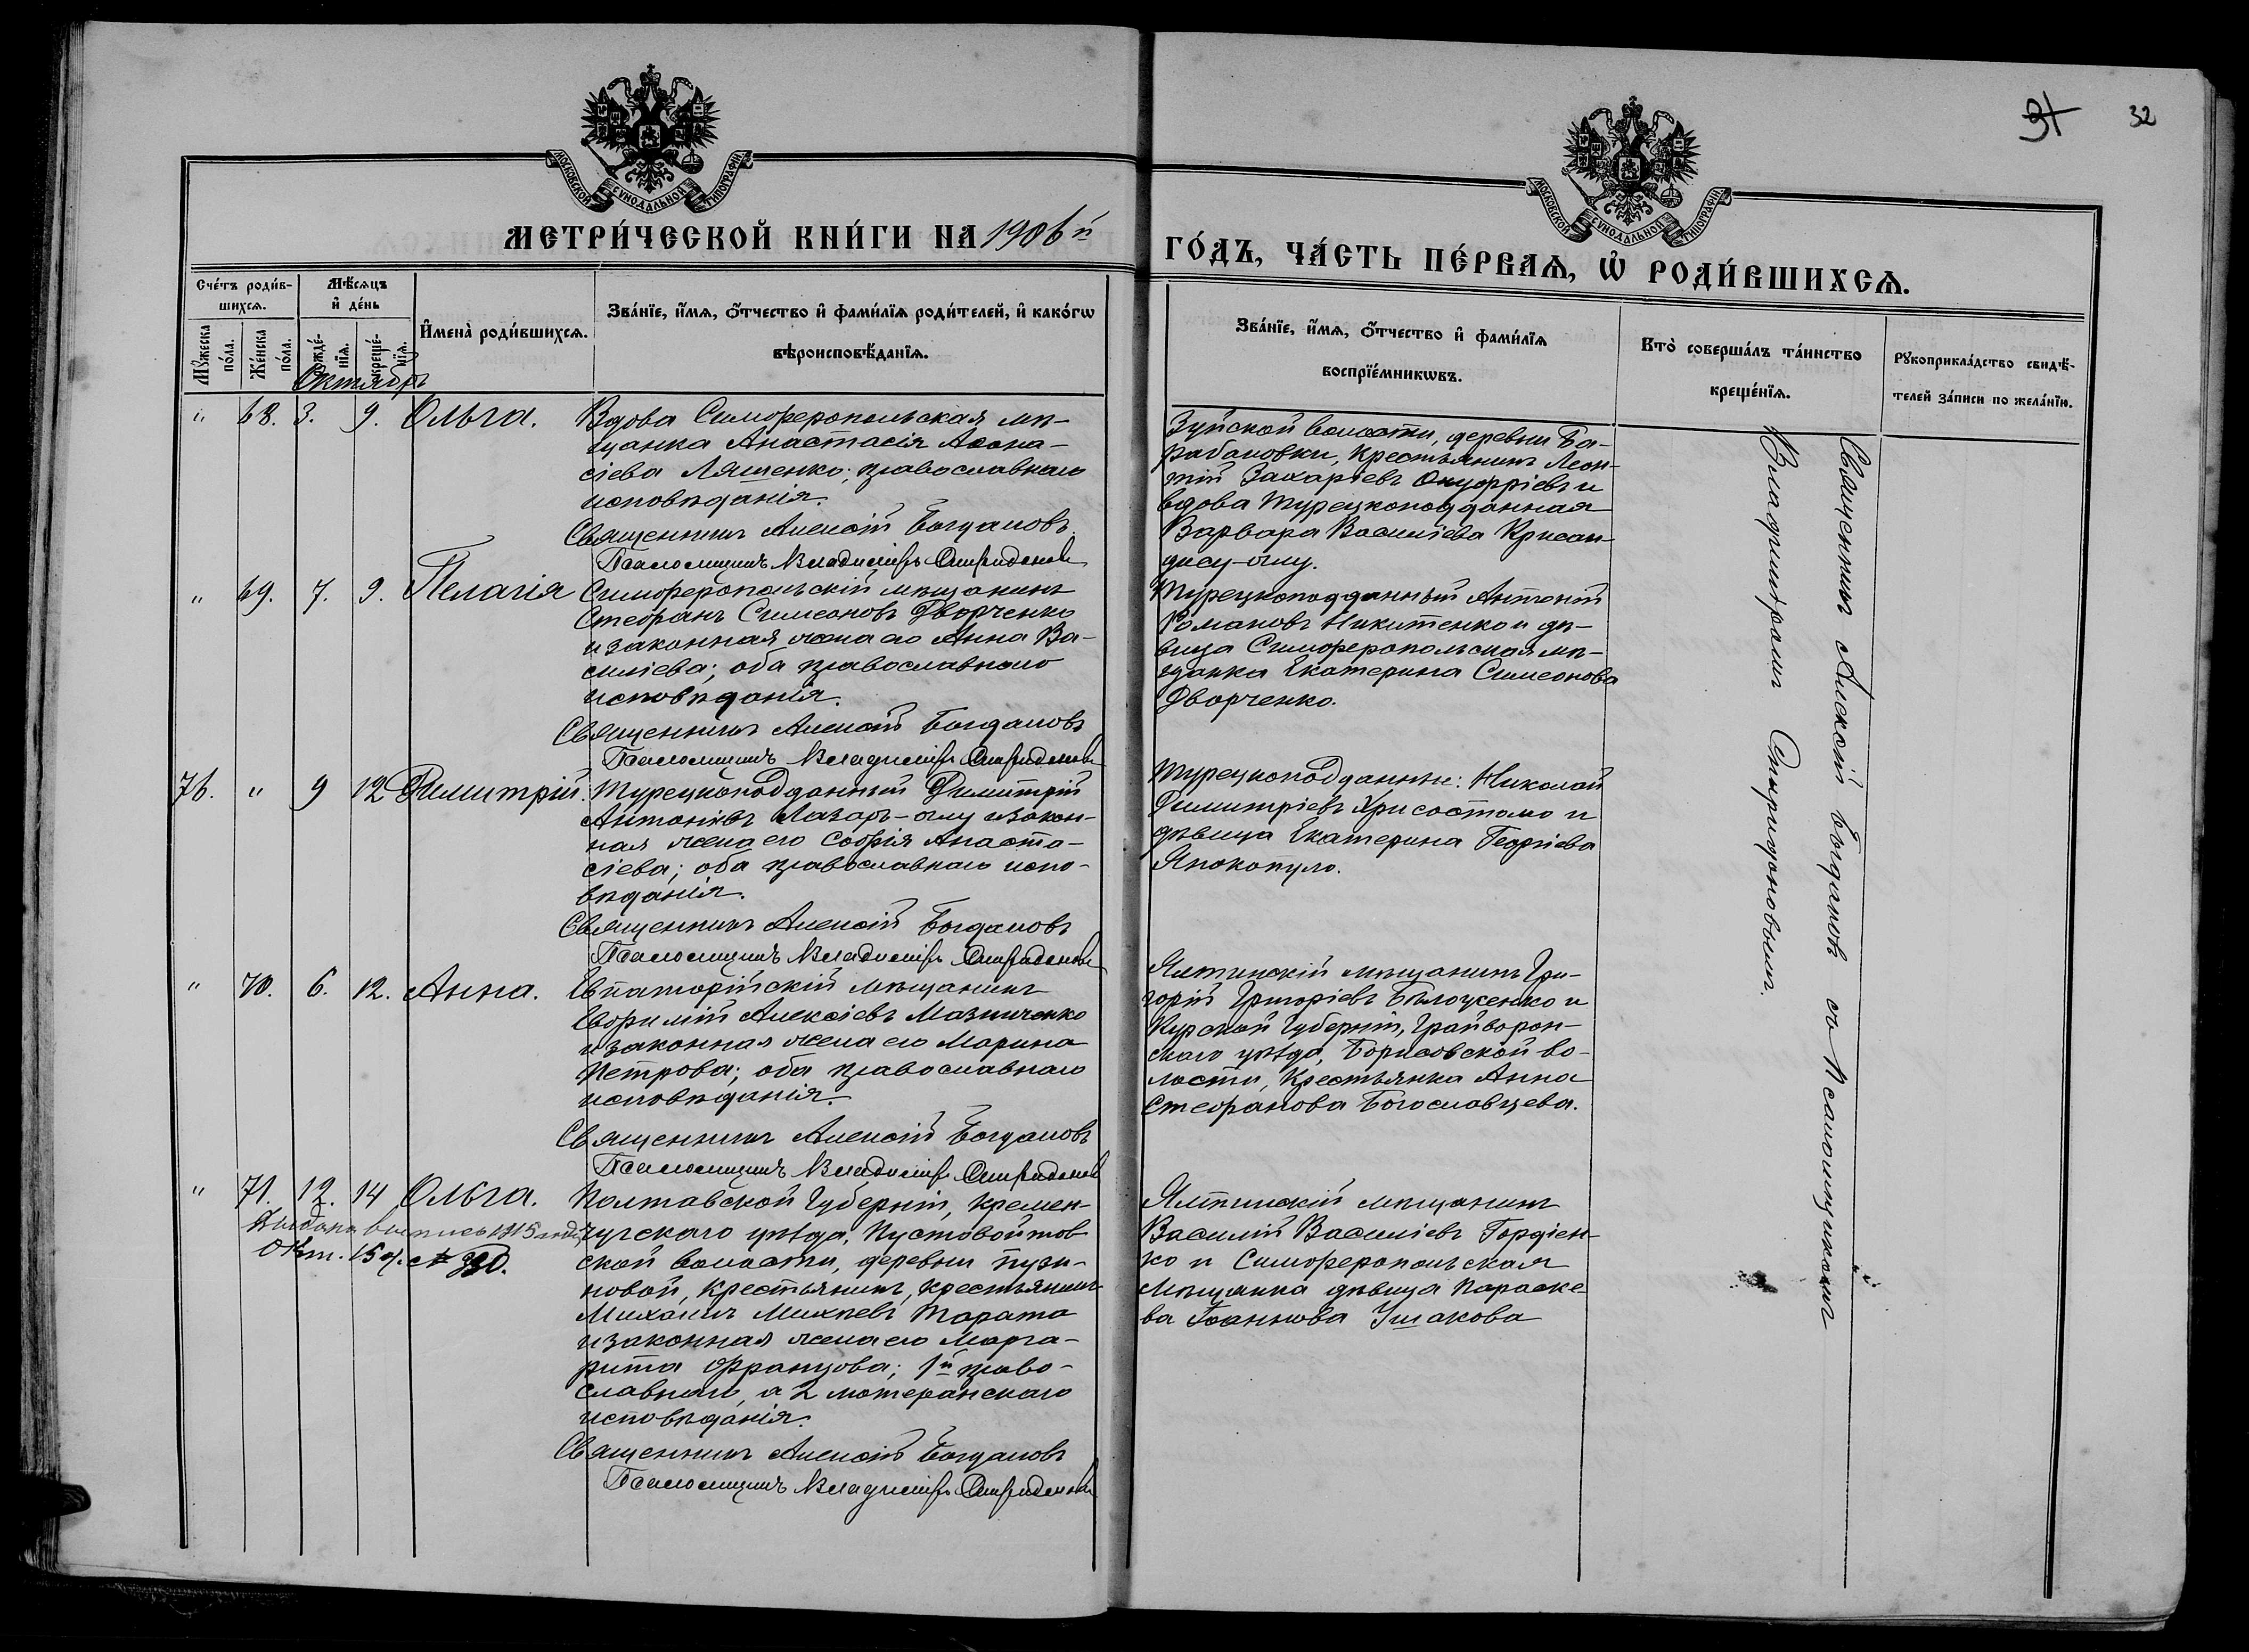 31 32
МОСКОВСКОЙ СУНОДАЛЬНОЙ ТИПОГРАФІИ
МОСКОВСКОЙ СУНОДАЛЬНОЙ ТИПОГРАФІИ
МЕТРИ́ЧЕСКОЙ КНИ́ГИ НА 1906й
ГО́ДЪ, ЧА́СТЬ ПЕ́РВАѦ, Ѡ РОДИ́ВШИХСѦ.
Сче́тъ роди́в-
шихсѧ.
Мѣ́сяцъ
и҆ де́нь
Мꙋ́жеска
по́ла.
Же́нска
по́ла.
рожде́-
нїѧ.
креще́-
нїѧ.
И҆мена̀ роди́вшихсѧ.
Зва́нїе, и҆́мѧ, ѻ҆́тчество и҆ фами́лїѧ роди́телей, и҆ како́гѡ
вѣроисповѣ́данїѧ.
Зва́нїе, и҆́мѧ, ѻ҆́тчество и҆ фами́лїѧ
воспрїе́мникѡвъ.
Кто̀ соверша́лъ та́инство
креще́нїѧ.
Рꙋкоприкла́дство свидѣ́-
телей за́писи по жела́нїю.
Октябрь
" 68. 3. 9. Ольга.
Вдова Симферопольская мѣ-
щанка Анастасія Аѳана-
сіева Ляшенко; православнаго
исповѣданія.
Священникъ Алексій Богдановъ
Псаломщикъ Владиміръ Спиридоновъ
Зуйской волости, деревни Ба-
рабановки, крестьянинъ Леон-
тій Захаріевъ и
вдова турецкоподданная
Варвара Василіева Крисан-
-оглу.
" 69. 7. 9. Пелагія
Симферопольскій мѣщанинъ
Стефанъ Симеоновъ Дворченко
и законная жена его Анна Ва-
силіева; оба православнаго
исповѣданія.
Священникъ Алексій Богдановъ
Псаломщикъ Владиміръ Спиридоновъ
Турецкоподданный Антоній
Романовъ Никитенко и дѣ-
вица Симферопольская мѣ-
щанка Екатерина Симеонова
Дворченко.
76. " 9 12 Димитрій.
Турецкоподданный Димитрій
Антоніевъ Лазарь-оглу и закон-
ная жена его Софія Анаста-
сіева; оба православнаго испо-
вѣданія.
Священникъ Алексій Богдановъ
Псаломщикъ Владиміръ Спиридоновъ
Турецкоподданные: Николай
Димитріевъ Хрисостомо и
дѣвица Екатерина Георгіева
Япокопуло.
" 70. 6. 12. Анна.
Евпаторійскій мѣщанинъ
Евфимій Алексіевъ Мазниченко
и законная жена его Марина
Петрова; оба православнаго
исповѣданія.
Священникъ Алексій Богдановъ
Псаломщикъ Владиміръ Спиридоновъ
Ялтинскій мѣщанинъ Гри-
горій Григоріевъ и
Курской губерніи, Грайворон-
скаго уѣзда, Борисовской во-
лости, крестьянка Анна
Стефанова Богославцева.
" 71. 12. 14 Ольга.
Выдана выпись 1915 года
Окт. 15 д. №
Полтавской губерніи, Кремен-
чугскаго уѣзда, Пустовойтов-
ской волости, деревни Пузи-
ковой, крестьянинъ, крестьянинъ
Михаилъ Михеевъ Тарата
и законная жена его Марга-
рита Францова; 1й право-
славнаго, а 2 лютеранскаго
исповѣданія.
Священникъ Алексій Богдановъ
Псаломщикъ Владиміръ Спиридоновъ
Ялтинскій мѣщанинъ
Василій Василіевъ Гордіен-
ко и Симферопольская
мѣщанка дѣвица Параске-
ва Іоаннова Ушакова
Священникъ Алексій Богдановъ съ псаломщикомъ
Владиміромъ Спиридоновымъ.